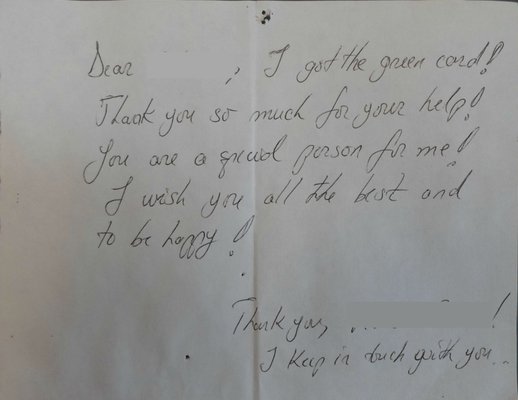 Dear , I got the green card!
Thank you so much for your help!
You are a special person for me!
I wish you all the best and
to be happy!
Thank you, !
I keep in touch with you..